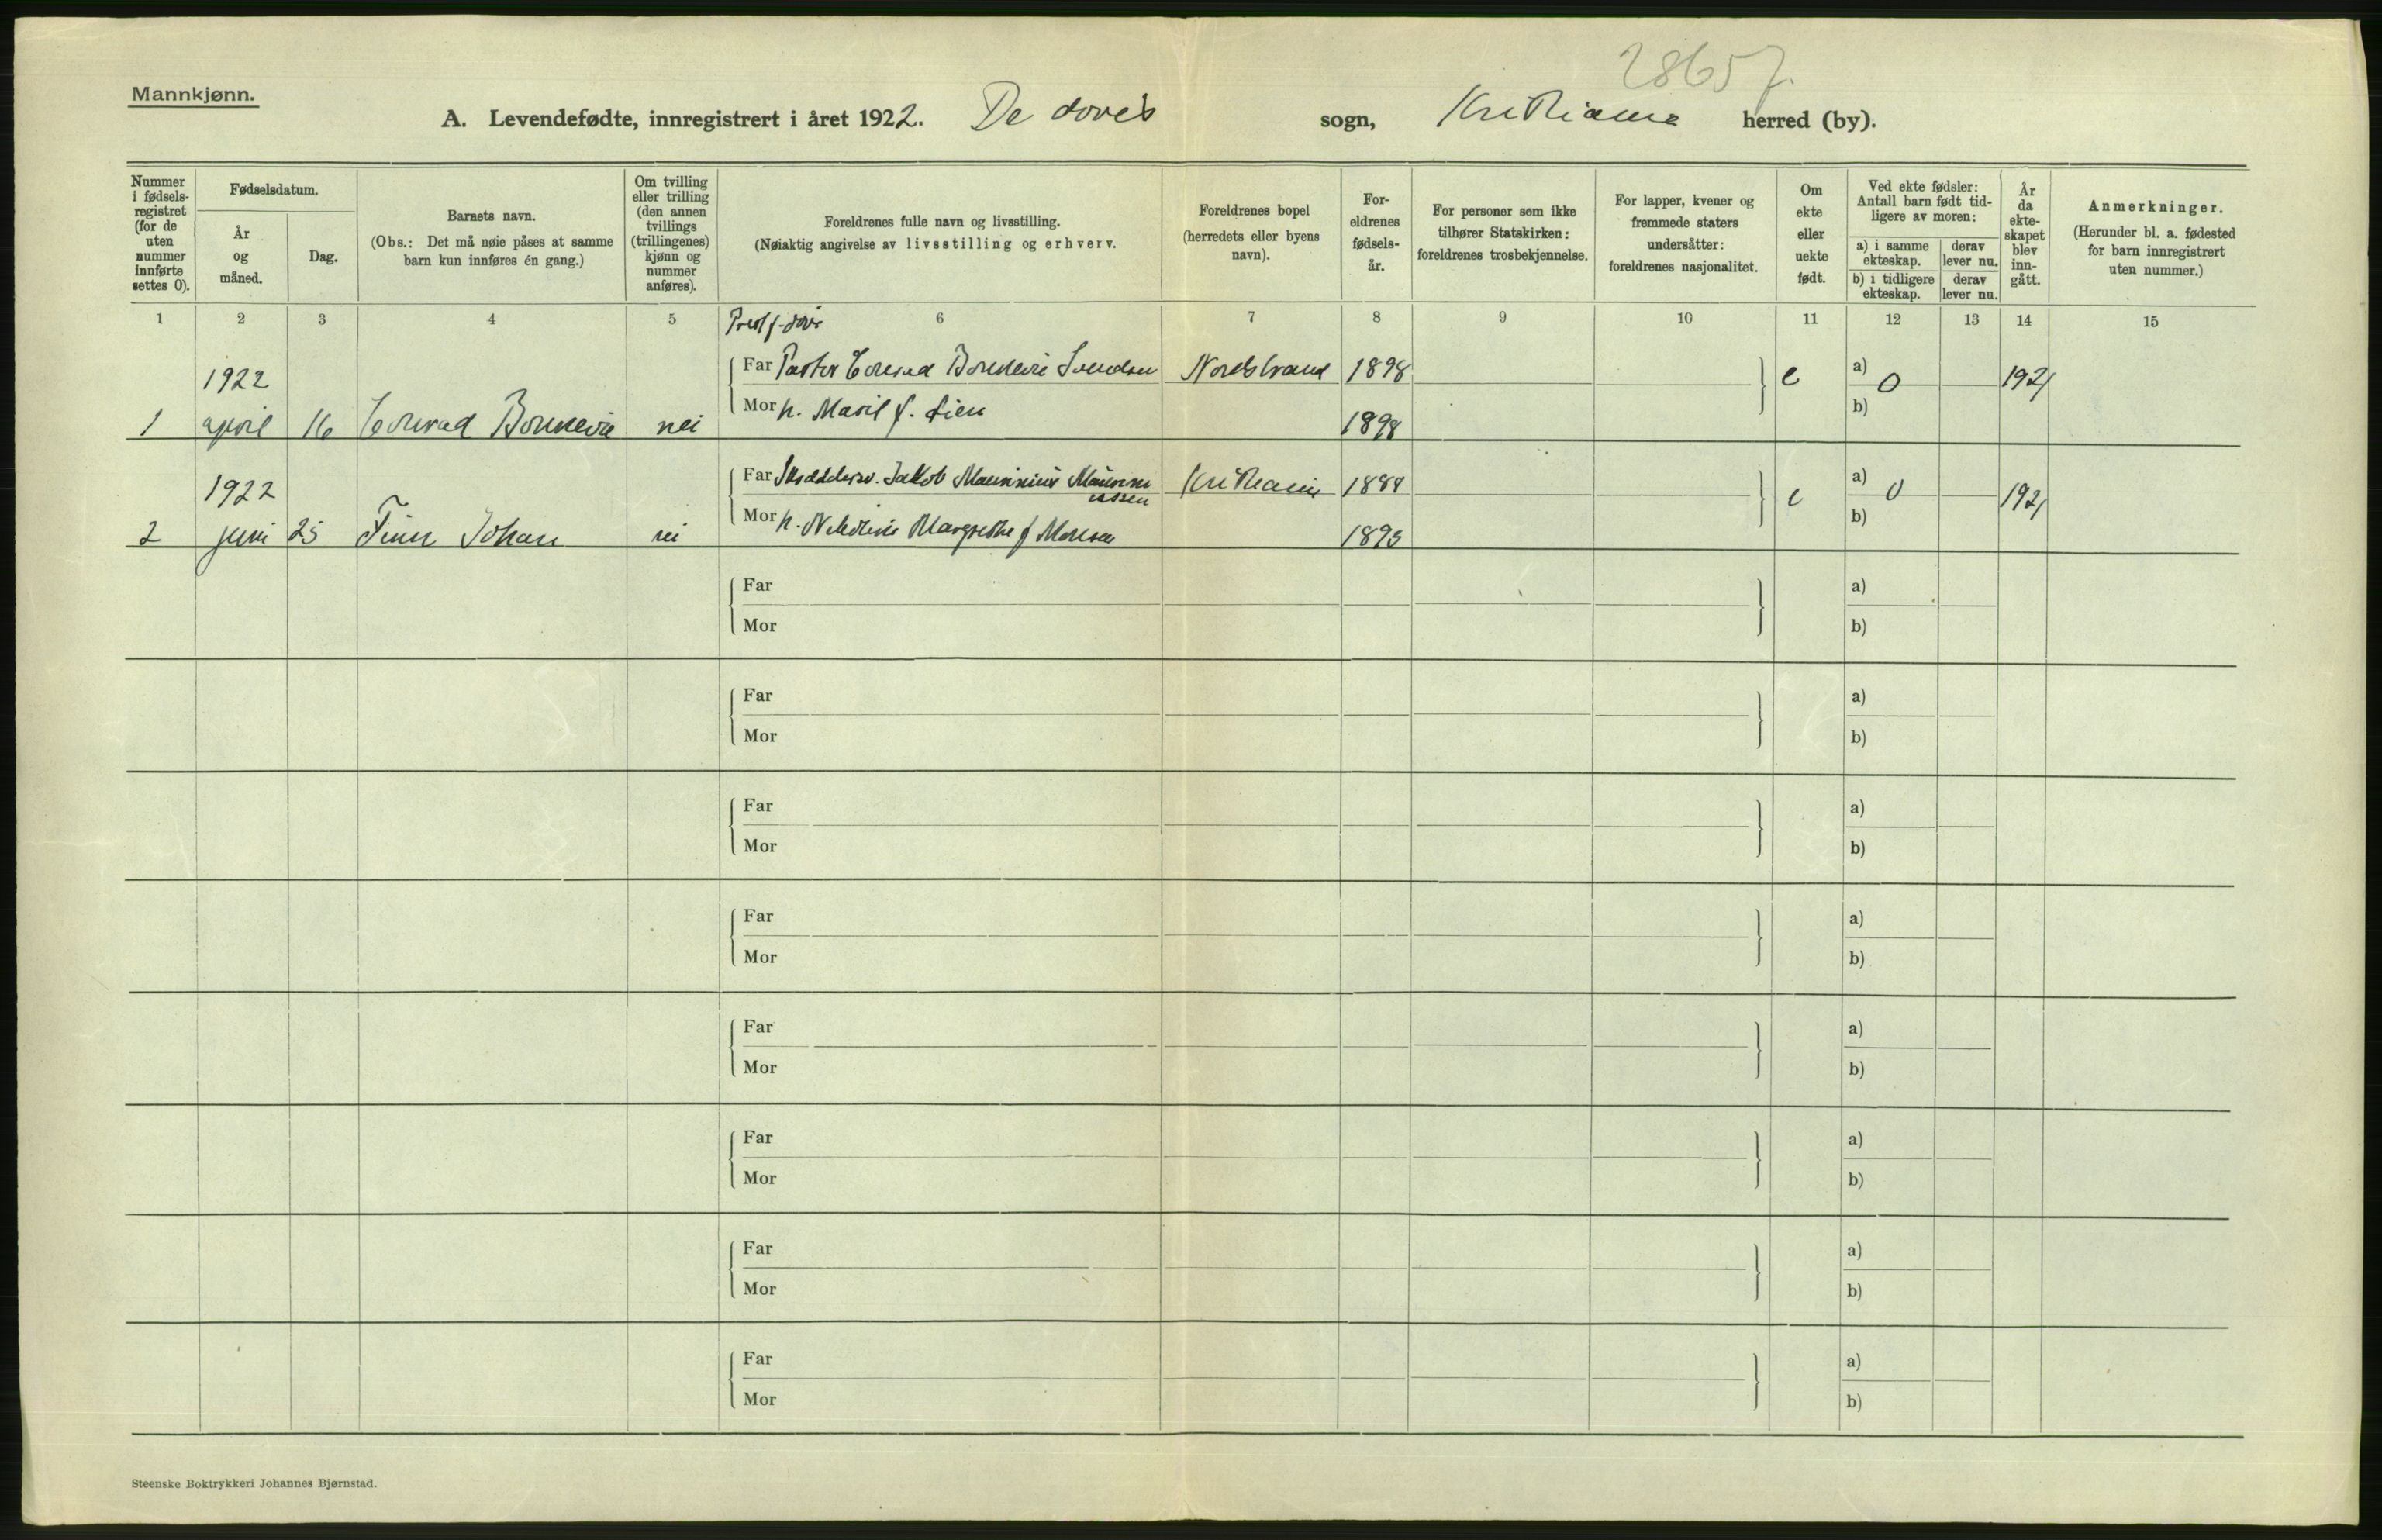 28657.
Mannkjønn.
A. Levendefødte, innregistrert i året 1922. De døves sogn, Kristiania herred (by).
Nummer i fødsels- registret (for de uten nummer innførte settes 0).
Fødselsdatum.
År og måned.
Dag.
Barnets navn.
(Obs.: Det må nøie påses at samme barn kun innføres én gang.)
Om tvilling eller trilling (den annen tvillings (trillingenes) kjønn og nummer anføres).
Foreldrenes fulle navn og livsstilling.
(Nøiaktig angivelse av livsstilling og erhverv.
Foreldrenes bopel (herredets eller byens navn).
For- eldrenes fødsels- år.
For personer som ikke tilhører Statskirken: foreldrenes trosbekjennelse.
For lapper, kvener og fremmede staters undersåtter: foreldrenes nasjonalitet.
Om ekte eller uekte født.
Ved ekte fødsler: Antall barn født tid- ligere av moren:
a) i samme ekteskap.
derav lever nu.
b) i tidligere ekteskap.
derav lever nu.
År da ekte- skapet blev inn- gått.
Anmerkninger.
(Herunder bl. a. fødested for barn innregistrert uten nummer.)
1 2 3 4 5 6 7 8 9 10 11 12 13 14 15
Prest f. døve
1922 Far Pastor Conrad Bonnevie Svendsen Nordstrand 1898 e a) 0 1921
1 april 16 Conrad Bonnevie nei Mor h. Maril f. Lien 1898 b)
1922 Far Skreddersv. Jakob Maurinius Maurini Kristiania 1888 e a) 0 1921
ussen
2 juni 25 Finn Johan nei Mor h. Margrethe f 1893 b)
Far a)
Mor b)
Far a)
Mor b)
Far a)
Mor b)
Far a)
Mor b)
Far a)
Mor b)
Far a)
Mor b)
Far a)
Mor b)
Far a)
Mor b)
Steenske Boktrykkeri Johannes Bjørnstad.